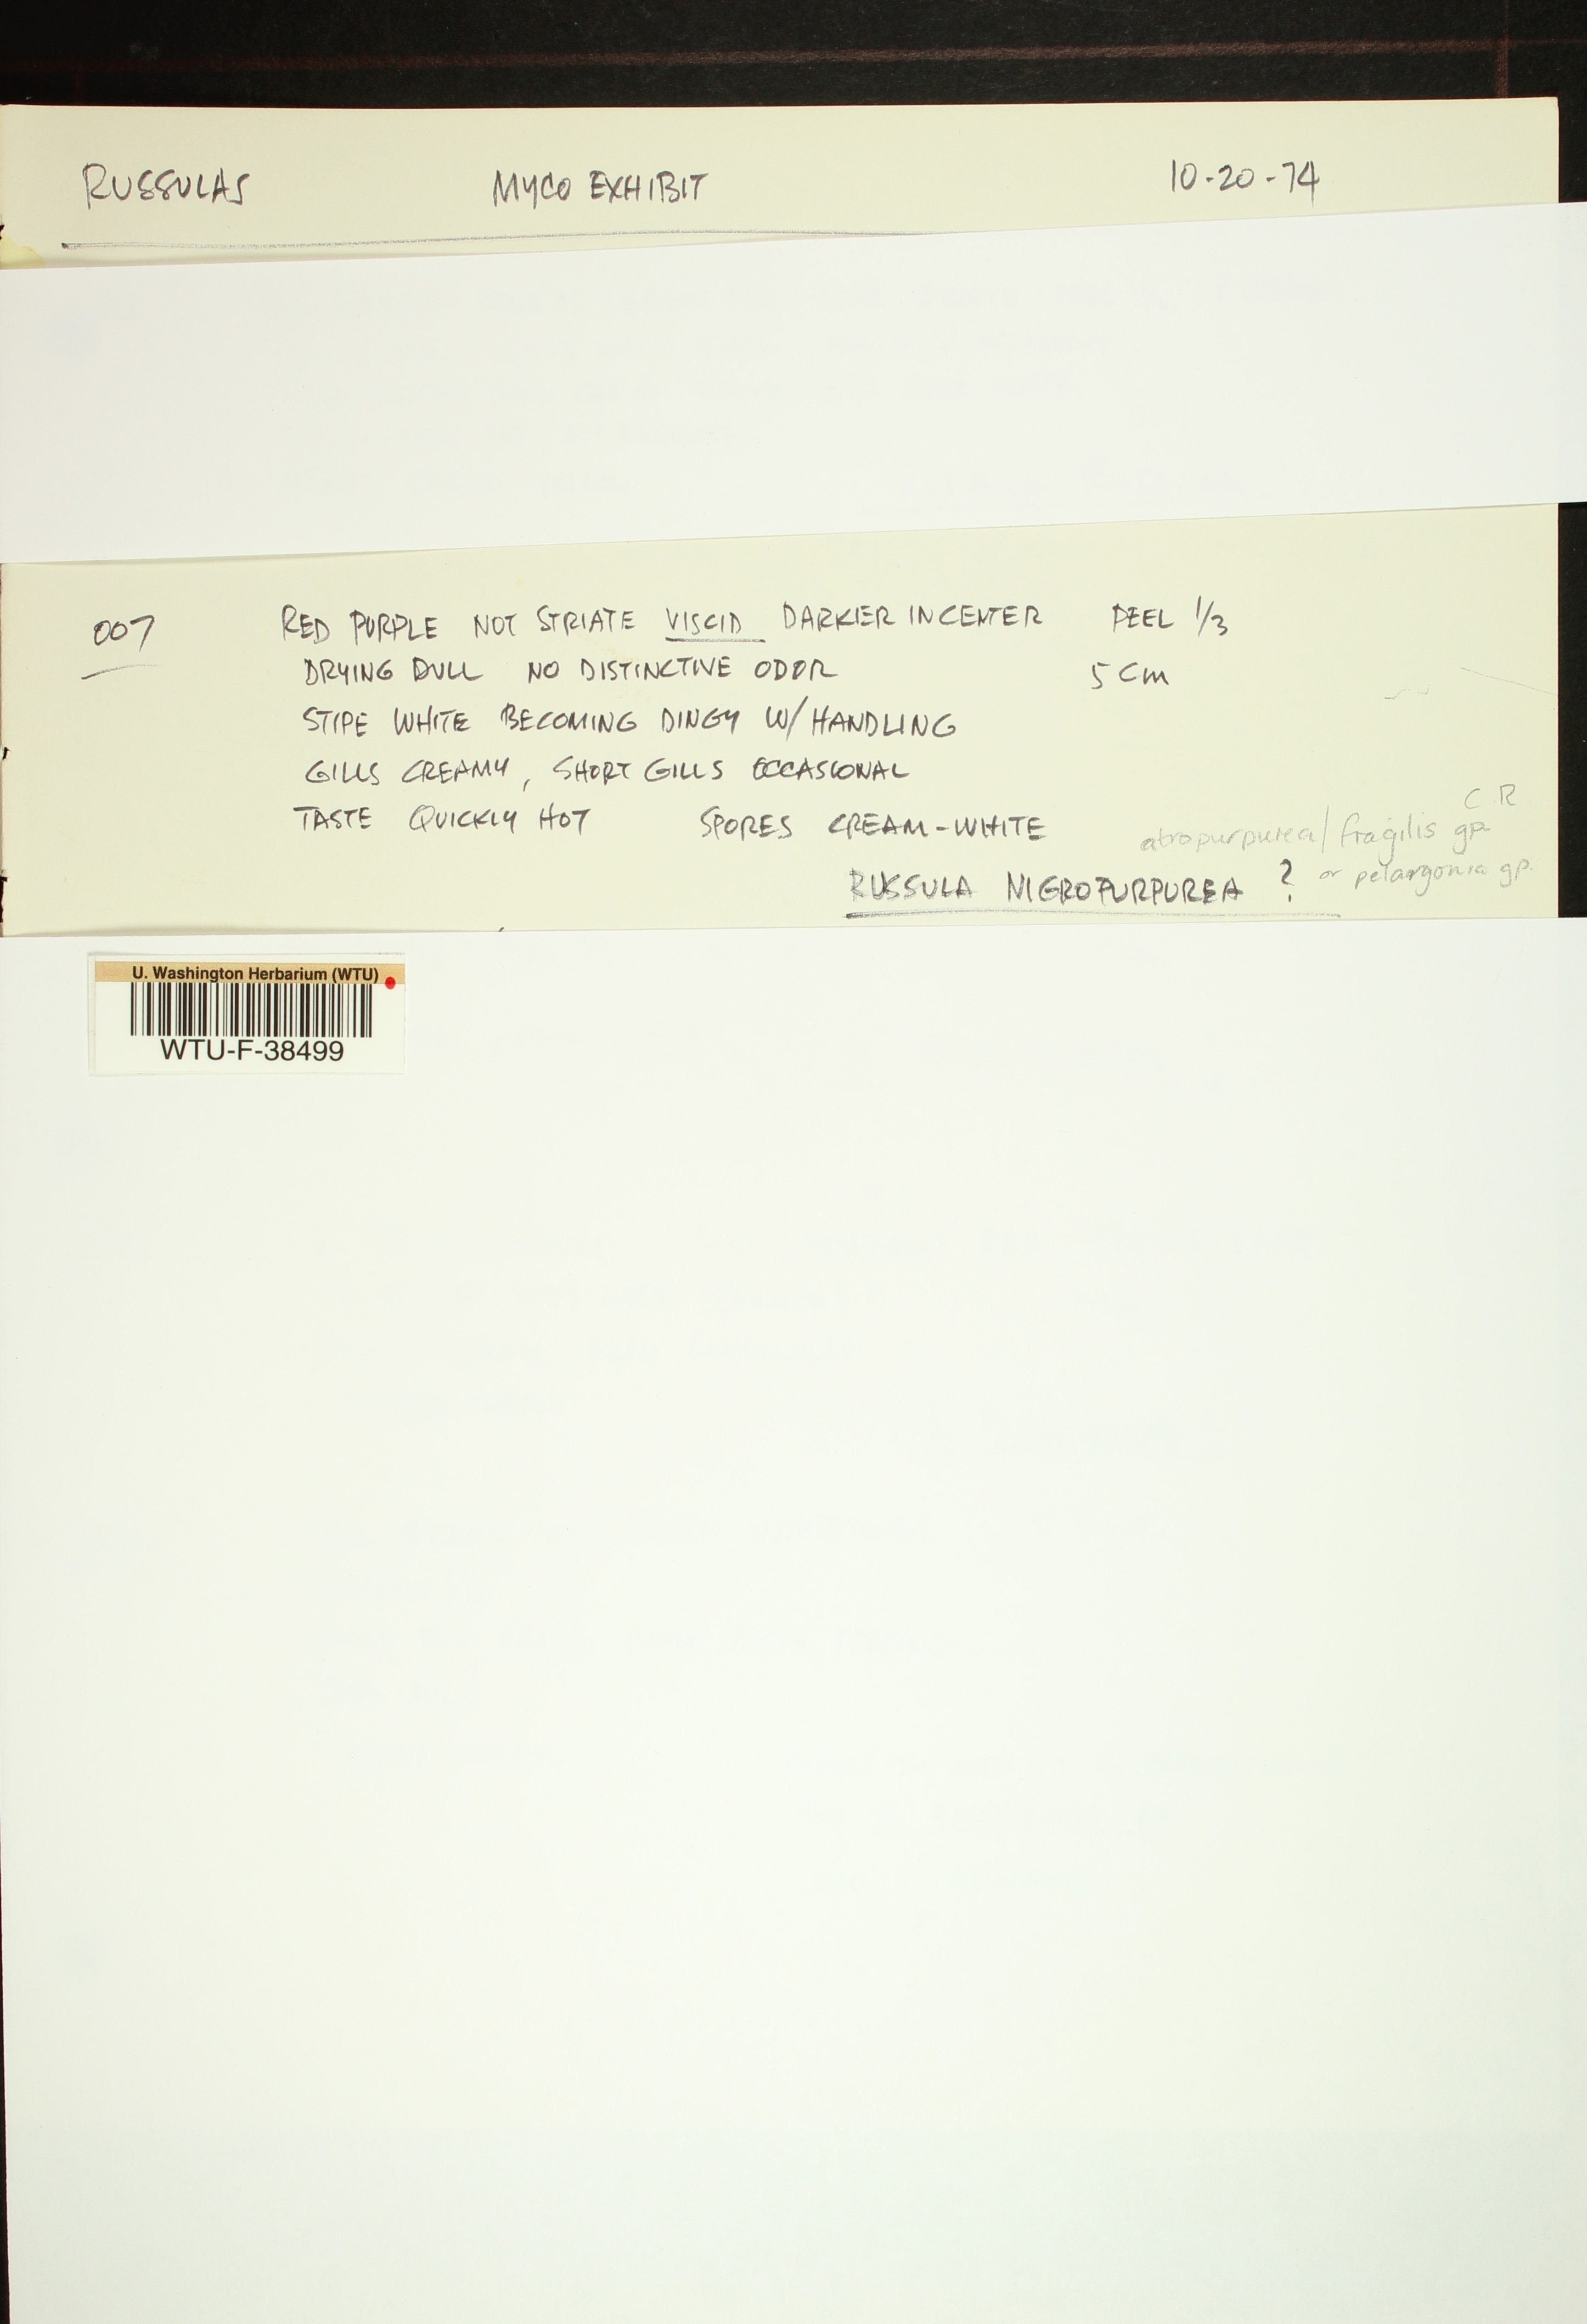 RUSSULAS MYCO EXHIBIT 10-20-74
007 RED PURPLE NOT STRIATE VISCID DARKER IN CENTER PEEL 1/3
DRYING DULL NO DISTINCTIVE ODOR 5 cm
STIPE WHITE BECOMING DINGY W/ HANDLING
GILLS CREAMY, SHORT GILLS OCCASIONAL
TASTE QUICKLY HOT SPORES CREAM-WHITE
C.R
atropurpurea/fragilis gp
RUSSULA NIGROPURPUREA ? or pelargonia gp.
U. Washington Herbarium (WTU)
WTU-F-38499